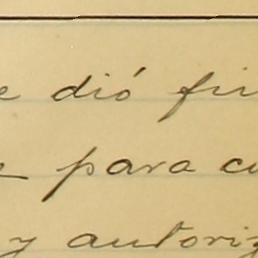 e dió fir
e para cu
y autoriz